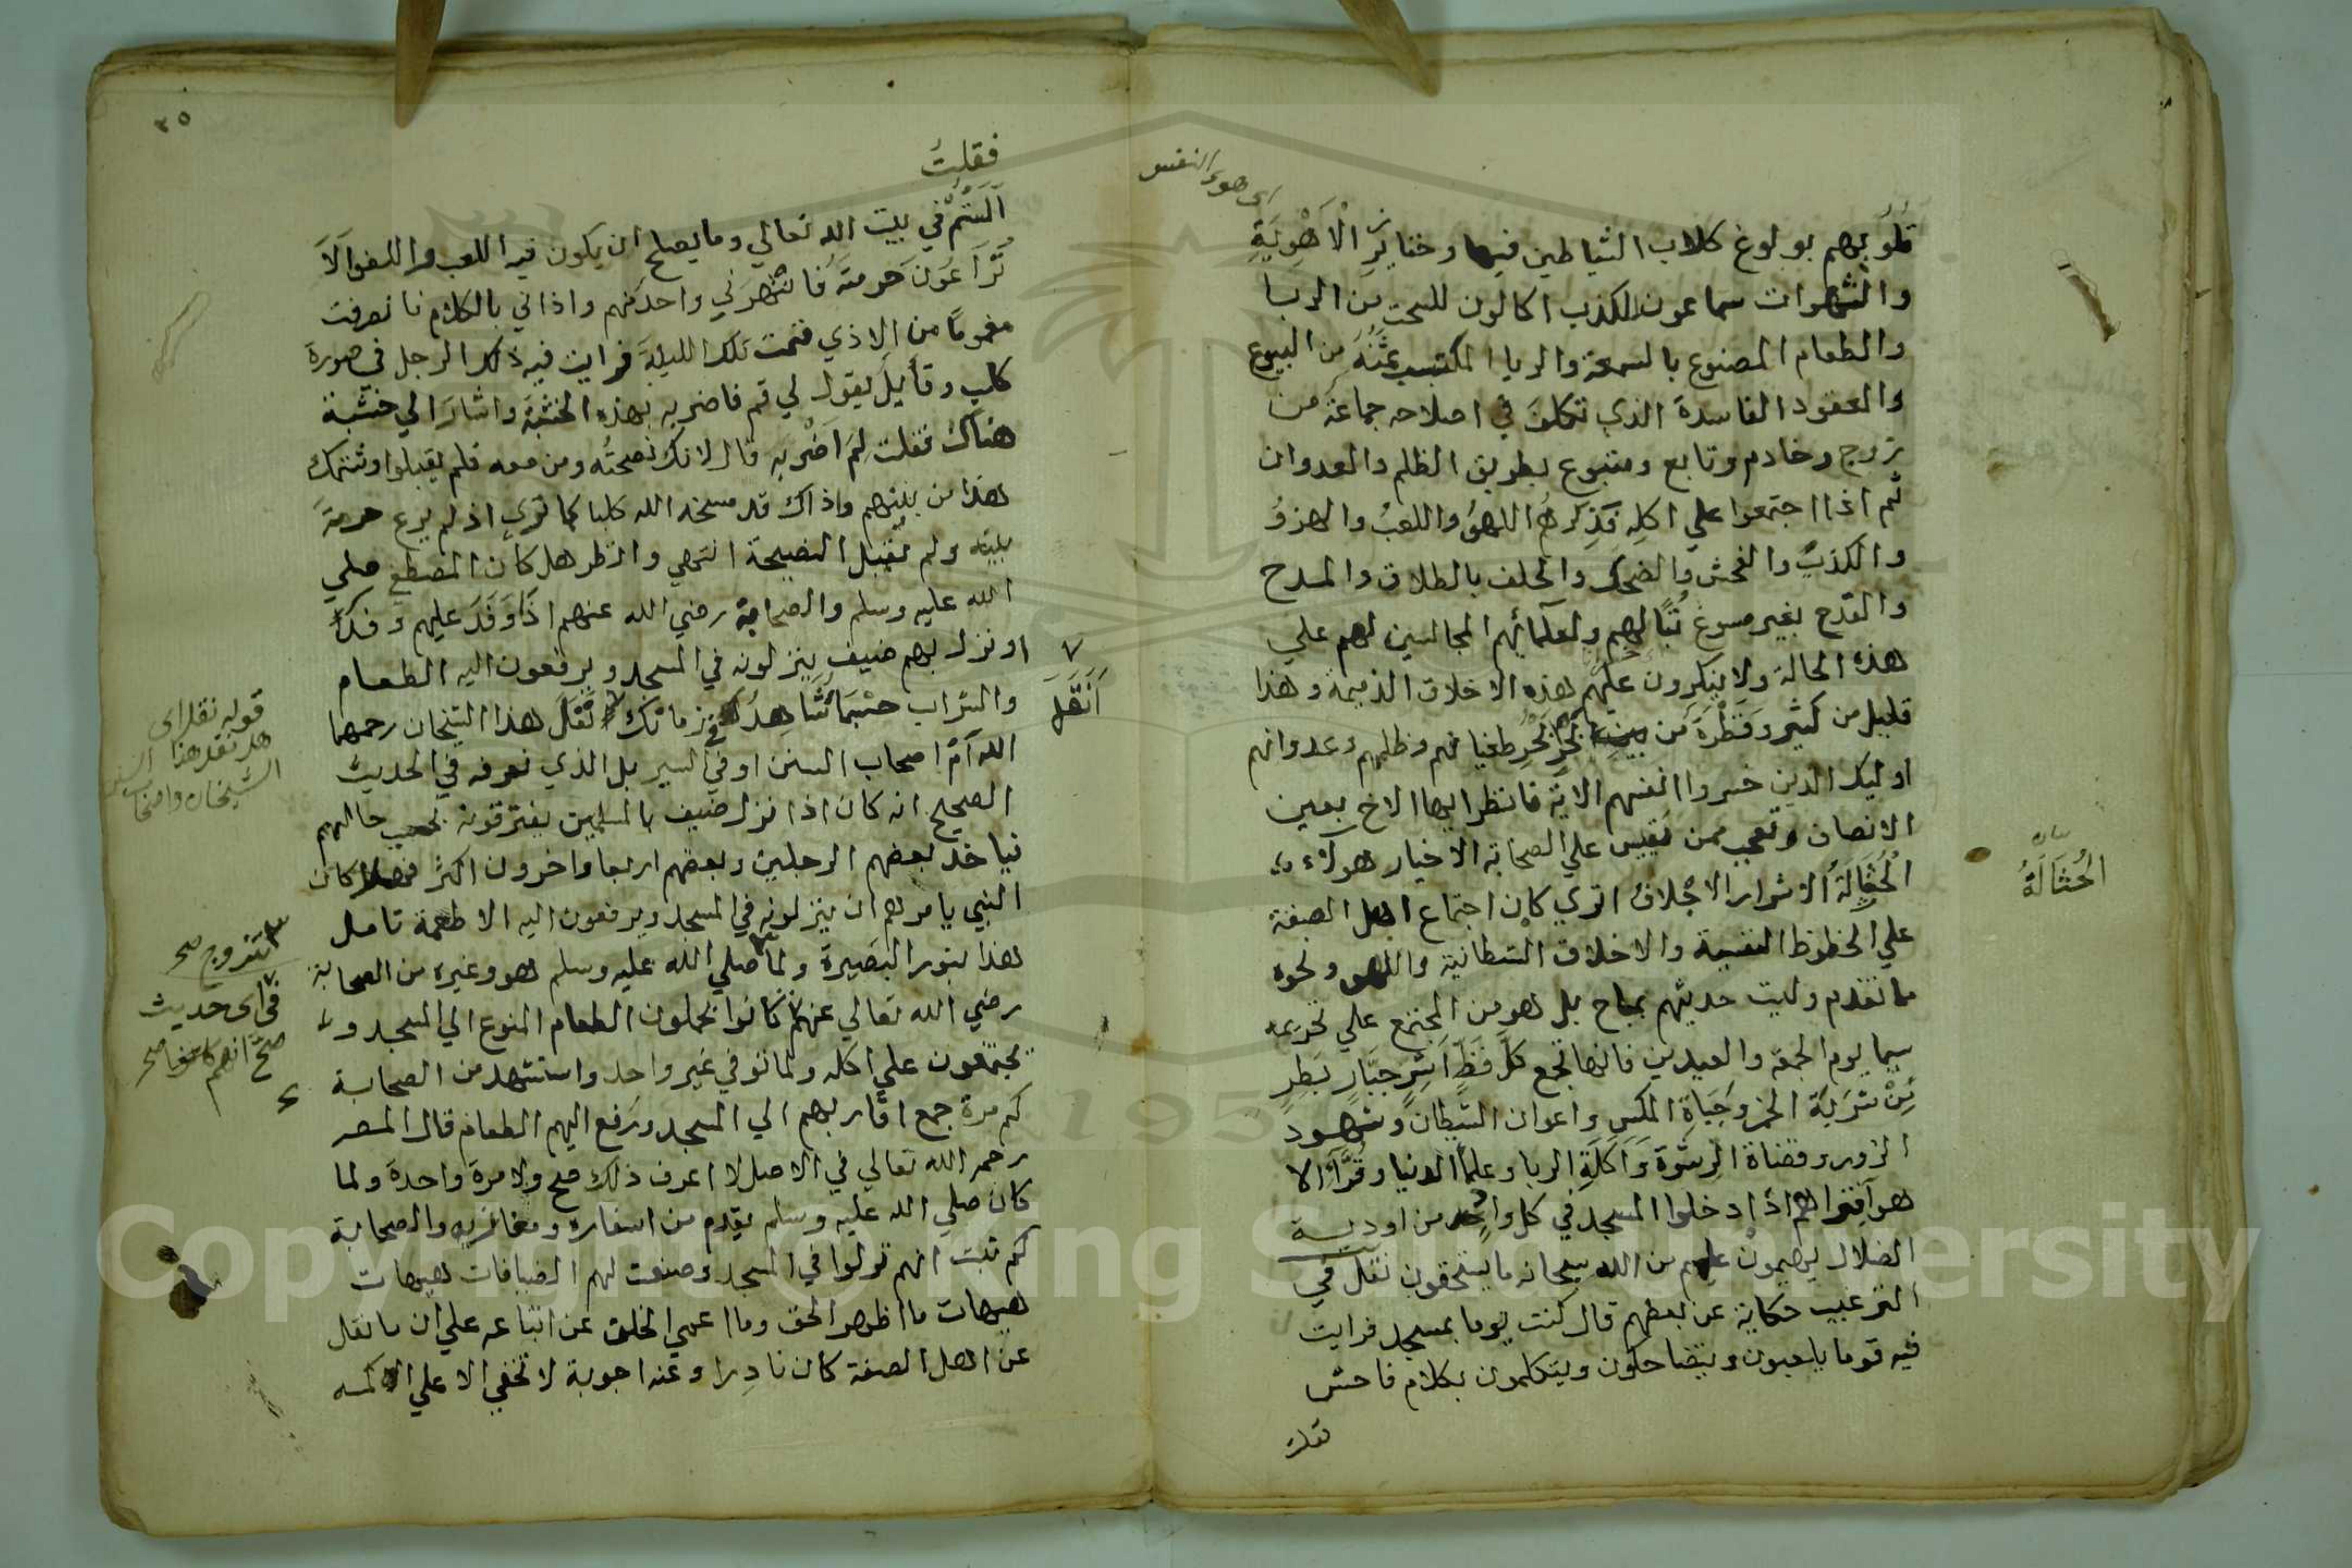 اى هوى النفس
قلوبهم بولوغ كلاب الشياطين فيها وخنازير الأهوية
والشهوات سماعون للكذب اكالون للسحت من الربا
والطعام المصنوع بالسمعة والريا المكتسب ثمنه من البيوع
والعقود الفاسدة الذي تكلف في اصلاحه جماعة من
زوج وخادم وتابع ومتبوع بطريق الظلم والعدوان
ثم اذا اجتمعوا علي اكله فذكرهم اللهو واللعب والهزو
والكذب والفحش والضحك والحلف بالطلاق والمدح
والقدح بغير مسوغ تبا لهم ولعلمائهم المجالسين لهم علي
هذه الحالة ولا ينكرون عليهم هذه الاخلاق الذميمة وهذا
قليل من كثير وقطرة من بحر طغيانهم وظلمهم وعدوانهم
اوليك الذين خسروا انفسهم الاية فانظر ايها الاخ بعين
الانصاف وتعجب ممن يقيس علي الصحابة الاخيار هولاء
الحثالة الاشرار الاجلاف اتري كان اجتماع اهل الصفة
علي الحظوظ النفسية والاخلاق الشيطانية واللهو ونحوه
مما تقدم وليت حديثهم بمباح بل هو من المجتمع علي تحريمه
سيما يوم الجمعة والعيدين فانها تجمع كل فظ اشر جبار بطر
من شربة الخمر وجباة المكس واعوان الشيطان وشهود
الزور وقضاة الرشوة واكلة الربا وعلما الدنيا وقرا الا
هو افتراهم اذا دخلوا المسجد في كل واحد من اودية
الضلال يهيمون عليهم من الله سبحانه ما يستحقون نقل في
الترغيب حكاية عن بعضهم قال كنت يوما بمسجد فرايت
فيه قوما يلعبون ويتضاحكون ويتكلمون بكلام فاحش
فقلت
الحثالة
٣٥
فقلت
الستم في بيت الله تعالي وما يصلح ان يكون فيه اللعب واللغو الا
تراعون حرمته فانتهرني واحد منهم واذاني بالكلام فانصرفت
مغموما من الاذي فنمت تلك الليلة فرايت فيه ذلك الرجل في صورة
كلب وقايل يقول لي قم فاضربه بهذه الخشبة واشار الي خشبة
هناك فقلت لم اضربه قال لانك نصحته ومن معه فلم يقبلوا وشتمك
هذا من بينهم واذاك قد مسخه الله كلبا كما تري اذ لم يرع حرمة
بيته ولم يقبل النصيحة انتهي وانظر هل كان المصطفي صلي
الله عليه وسلم والصحابة رضي الله عنهم اذا وفد عليهم وفد
او نزل بهم ضيف ينزلونه في المسجد ويرفعون اليه الطعام
والشراب حسبما تشاهده في زمانك نقل هذا الشيخان رحمهما
الله ام اصحاب السنن او في السير بل الذي نعرفه في الحديث
الصحيح انه كان اذا نزل ضيف بالمسلمين يفترقونه بحسب حالهم
فياخذ بعضهم الرجلين وبعضهم اربعا واخرون اكثر فهل كان
النبي يامرهم ان ينزلونه في المسجد ويرفعون اليه الاطعمة تامل
هذا بنور البصيرة ولما صلي الله عليه وسلم هو وغيره من الصحابة
رضي الله تعالي عنهم كانوا يحملون الطعام المنوع الي المسجد و
يجتمعون علي اكله ولما توفي غير واحد واستشهد من الصحابة
كم مرة جمع اقاربهم الي المسجد ورفع اليهم الطعام قال المص
رحمه الله تعالي في الاصل لا اعرف ذلك صح ولا مرة واحدة ولما
كان صلي الله عليه وسلم يقدم من اسفاره ومغازيه والصحابة
كم ثبت انهم نزلوا في المسجد وصنعت لهم الضيافات هيهات
هيهات ما اظهر الحق وما اعمي الخلق عن اتباعه علي ان ما نقل
عن اهل الصفة كان نادرا وعنه اجوبة لا تخفي الا علي الاكمه
أنقل
قوله نقل اى
هل نقل هذا
الشيخان واصحاب السنن
تزوج صح
فى اى حديث
صح انهم كانوا صح
Copyright © King Saud University
195